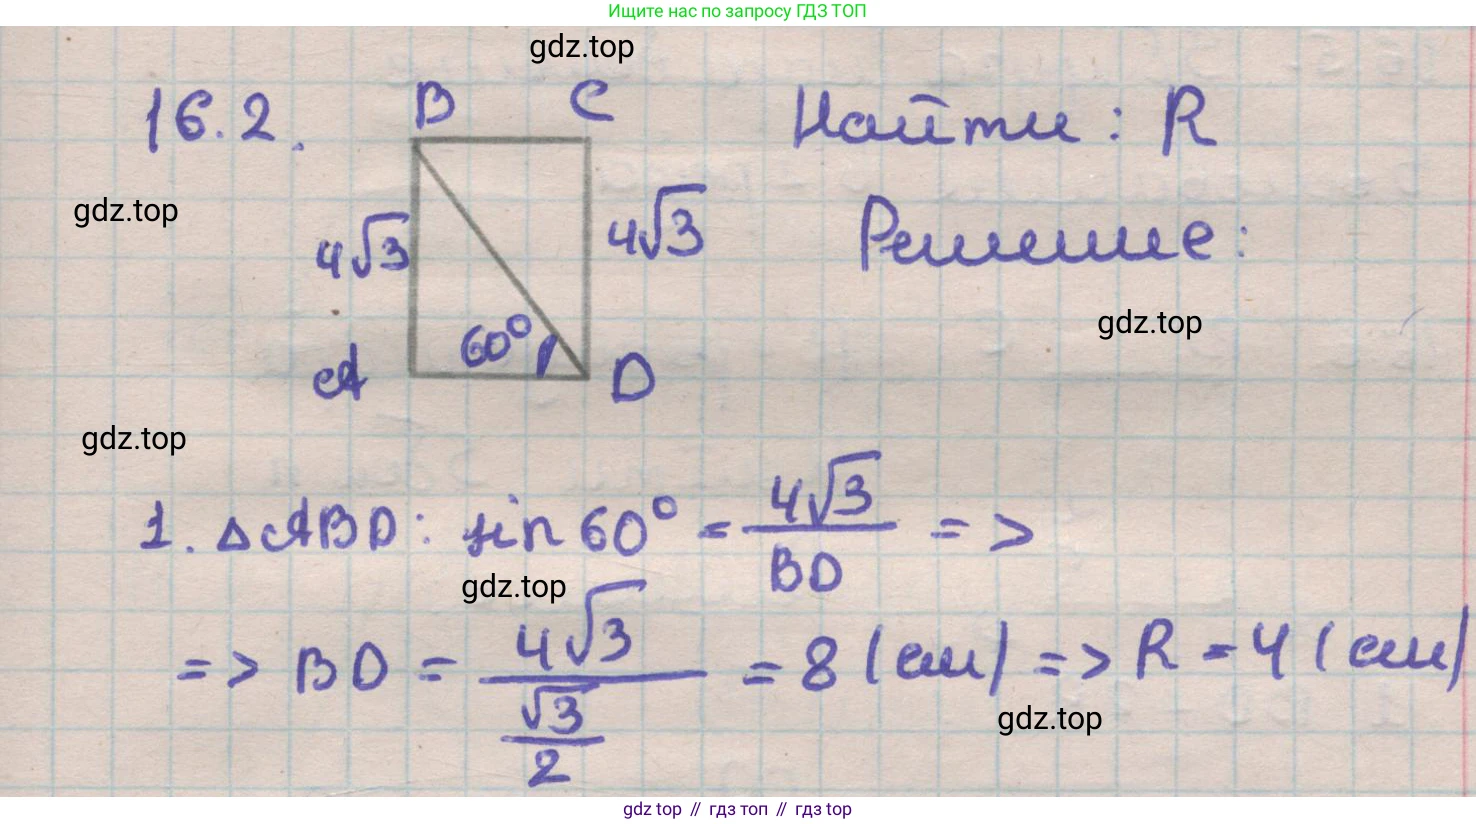 Ищите нас по запросу ГДЗ ТОП
gdz.top
16.2.
B C
Найти: R
gdz.top
4√3
4√3
Решение:
60°
gdz.top
A
D
gdz.top
1. △ABD: sin 60° = 4√3 / BD =>
gdz.top
=> BD = 4√3 / (√3 / 2) = 8 (см) => R = 4 (см)
gdz.top
gdz top // гдз топ // гдз top